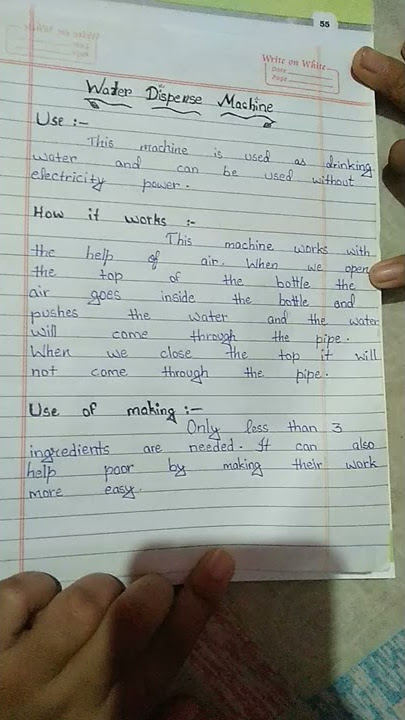 55
Write on White
Date
Page
Water Dispense Machine
Use :-
This machine is used as drinking
water and can be used without
electricity power.
How it works :-
This machine works with
the help of air. When we open
the top of the bottle the
air goes inside the bottle and
pushes the water and the water
will come through the pipe.
When we close the top it will
not come through the pipe.
Use of making :-
Only less than 3
ingredients are needed. It can also
help poor by making their work
more easy.